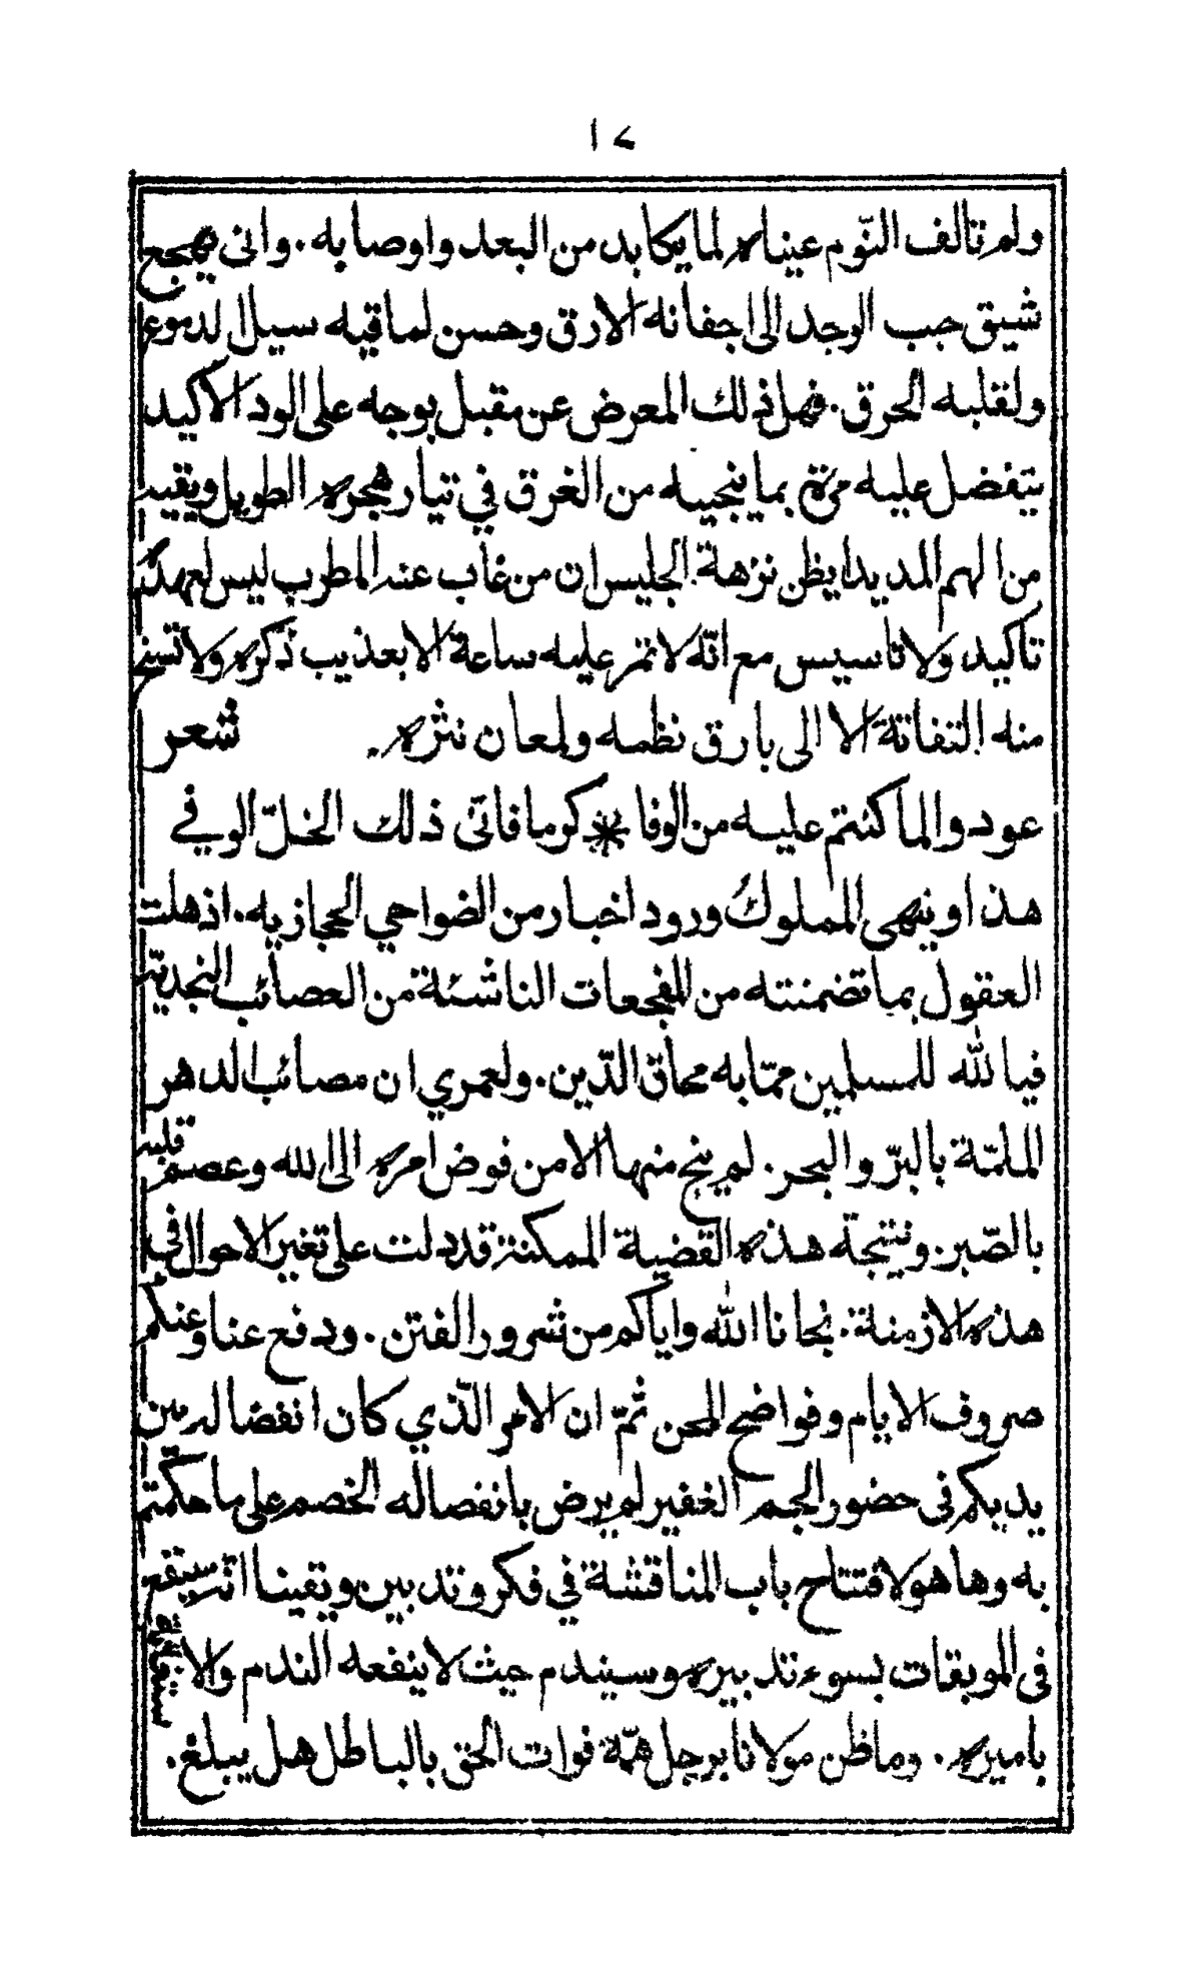 ١٧
ولم تألف النّوم عيناه لما يكابد من البعد واوصابه . وانى يهجع
شيق حبب الوجد الى اجفانه الارق وحسن لماقيه سيل الدموع
ولقلبه الحرق . فهل ذلك المعرض عن مقبل بوجه على الود الاكيد
يتفضل عليه مرة بما ينجيه من الغرق في تيار هجره الطويل ويقيه
من الهم المديد ايظن نزهة الجليس ان من غاب عند المطرب ليس لعهده
تأكيد ولا تأسيس مع انّه لا تمر عليه ساعة الا بعذيب ذكره ولا تسنح
منه التفاتة الا الى بارق نظمه ولمعان نثره . شعر
عودوا لما كنتم عليه من الوفا * كرما فاتى ذلك الخلّ الوفي
هذا وينهى المملوك ورود اخبار من الضواحي الحجازيه . اذهلت
العقول بما تضمنته من المفجعات الناشئة من العصائب النجديّة
فيا لله للمسلمين ممّا به محاق الدّين . ولعمري ان مصائب الدهر
الملمّة بالبرّ والبحر . لم ينج منها الا من فوض امره الى الله وعصم قلبه
بالصّبر . ونتيجة هذه القضية الممكنة قد دلت على تغير الاحوال في
هذه الازمنة . نجانا الله واياكم من شرور الفتن . ودفع عنا وعنكم
صروف الايام وفواضح المحن ثمّ ان الامر الّذي كان انفصاله من بين
يديكم فى حضور الجم الغفير لم يرض بانفصاله الخصم على ما حكمتم
به وها هو لافتتاح باب المناقشة في فكر وتدبير ويقينا انّه سيقع
فى الموبقات بسوء تدبيره وسيندم حيث لا ينفعه الندم والا ستغاثة
باميره . وما ظن مولانا برجل همّة فوات الحق بالباطل هل يبلغ .